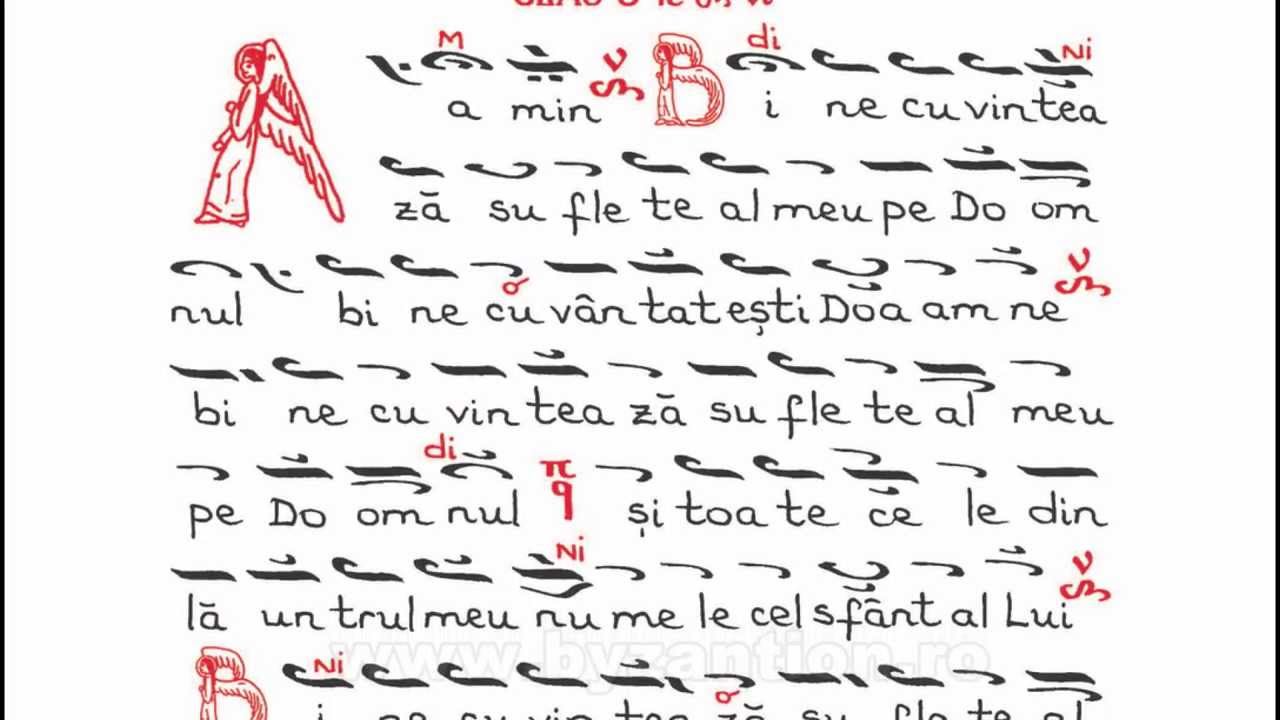 M di Ni
A a min B i ne cu vin tea
ză su fle te al meu pe Do om
nul bi ne cu vân tat ești Doa am ne
bi ne cu vin tea ză su fle te al meu
di
pe Do om nul și toa te ce le din
Ni
lă un trul meu nu me le cel sfânt al Lui
www.byzantion.ro
Ni
B i ne cu vin tea ză su fle te al